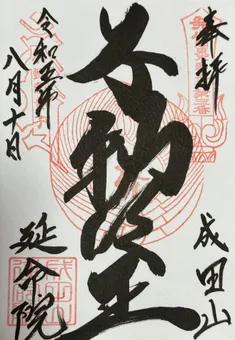 奉拝
成田山
不動明王
令和五年
八月十日
延命院